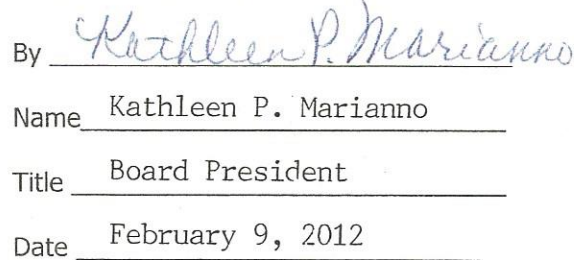 By Kathleen P. Marianno
Name Kathleen P. Marianno
Title Board President
Date February 9, 2012